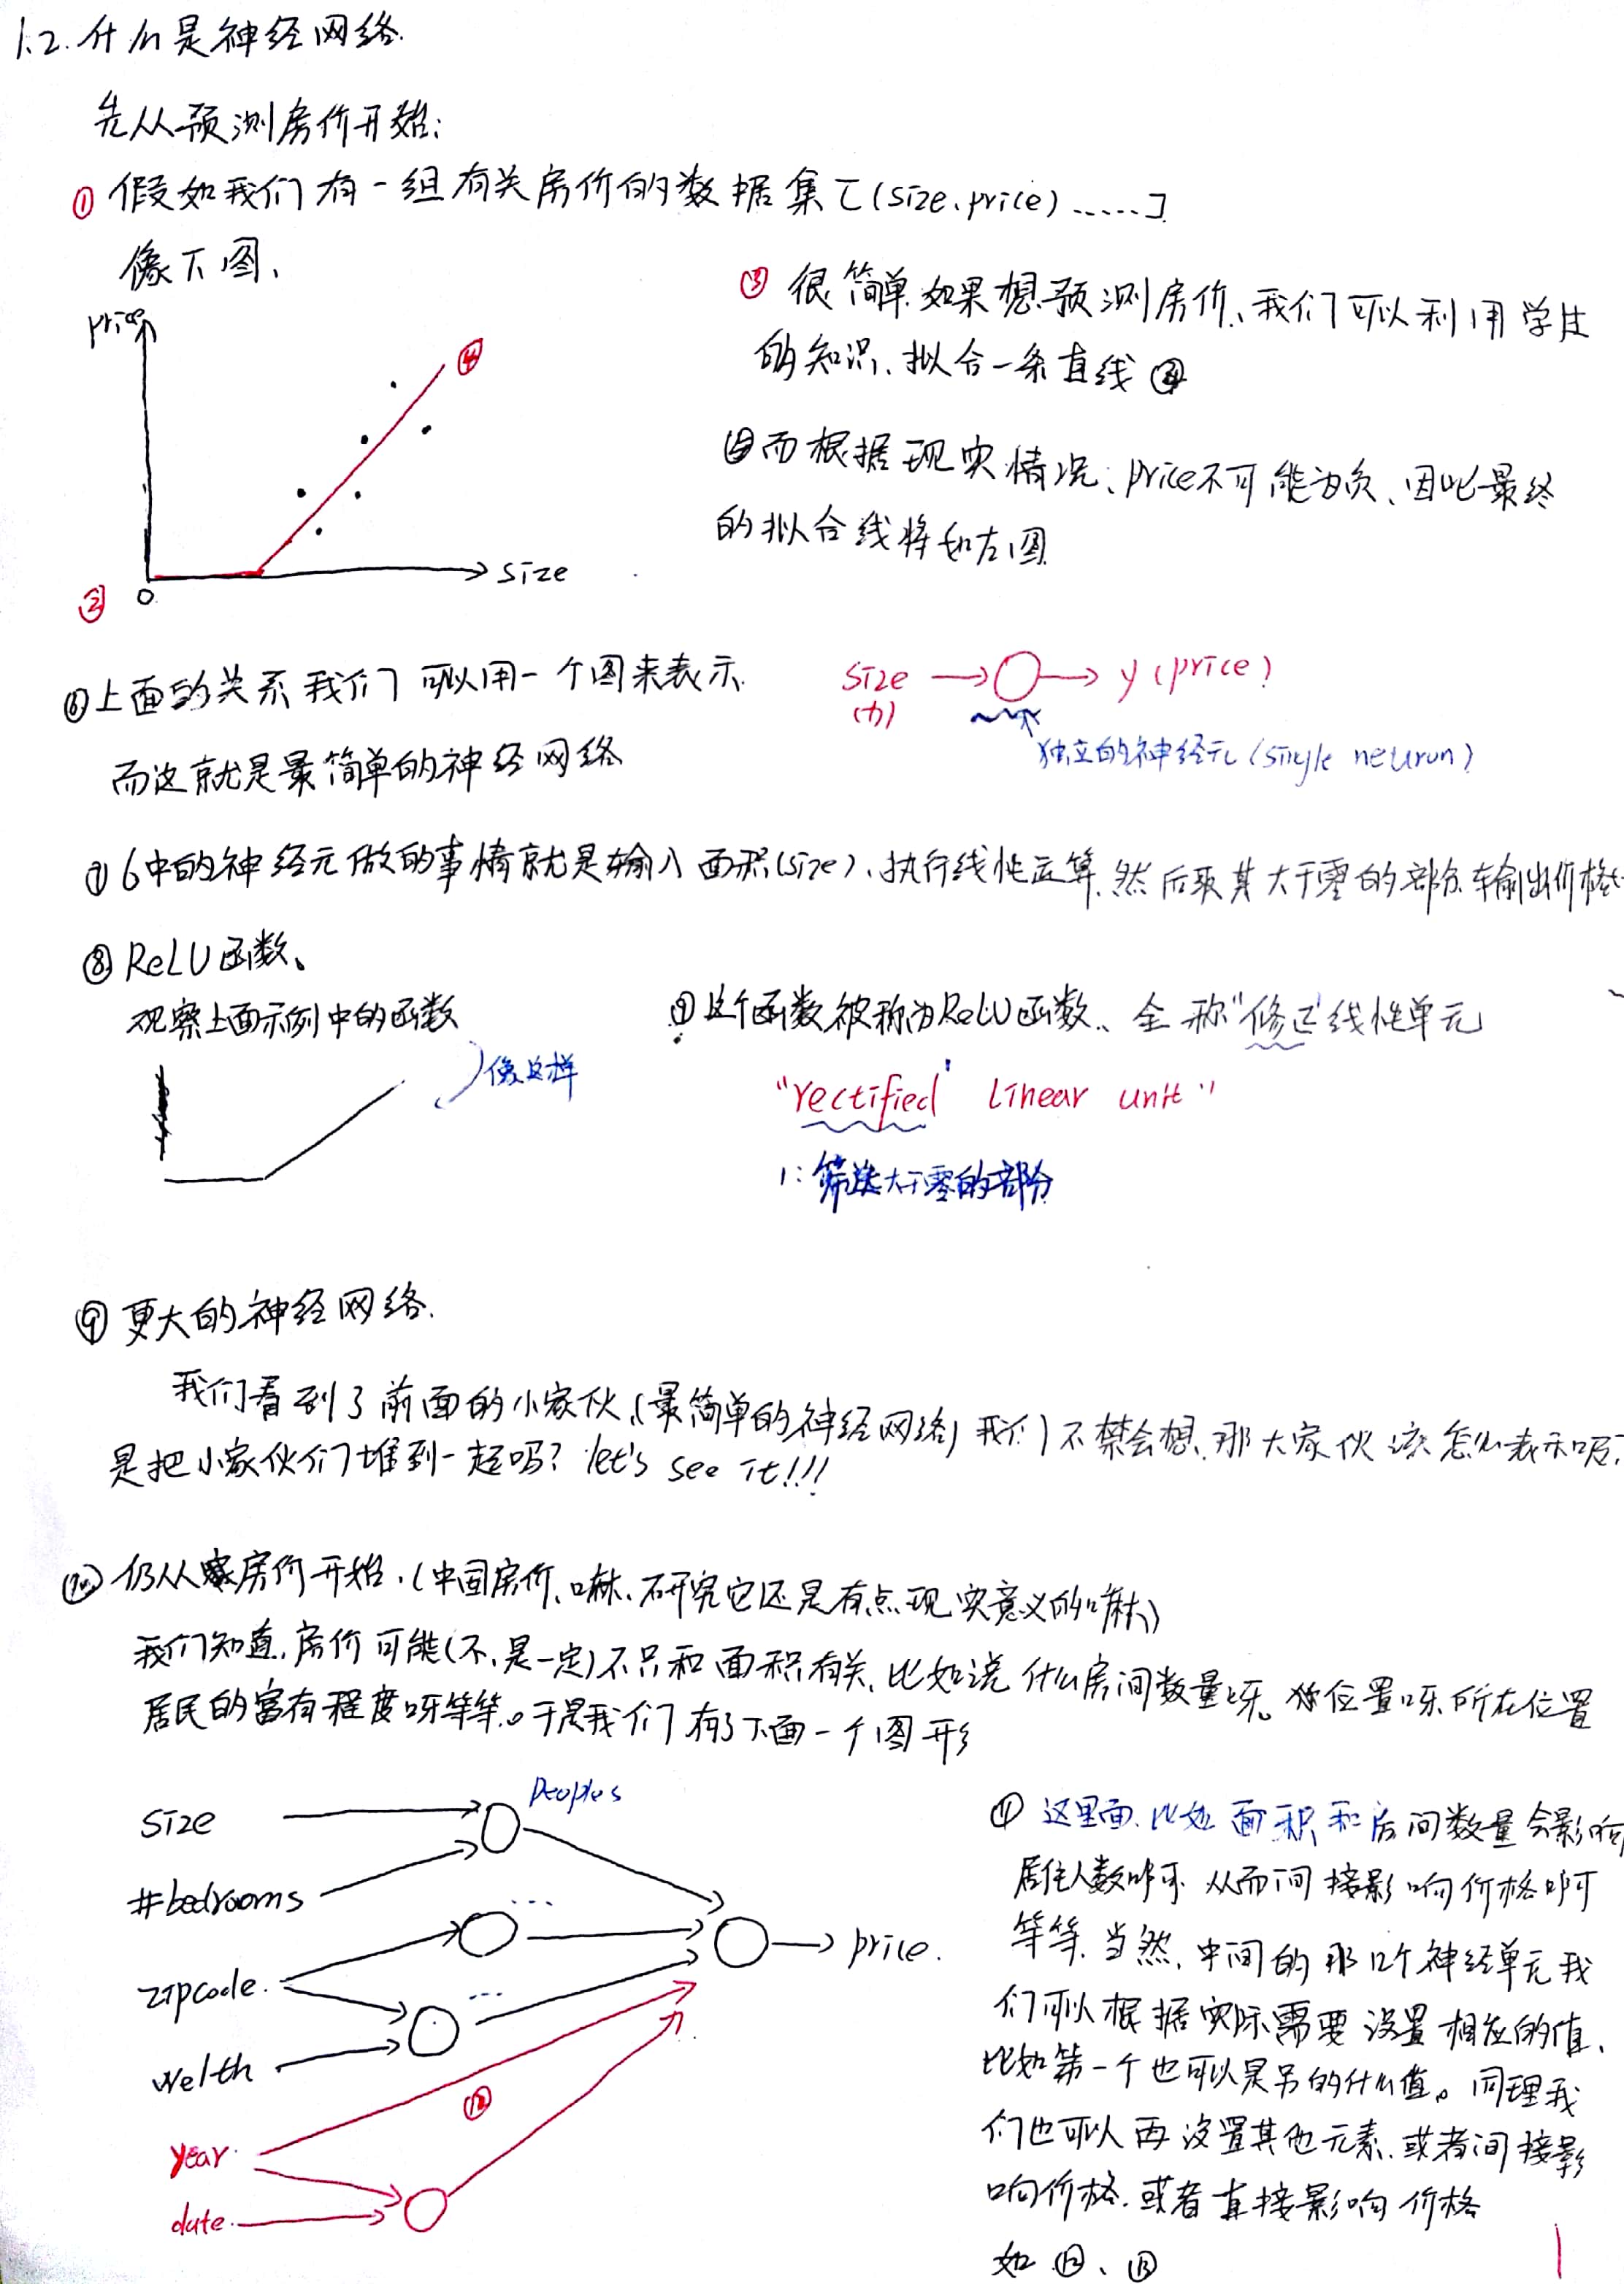 1.2.什么是神经网络.
先从预测房价开始:
① 假如我们有一组有关房价的数据集[(size,price)......]
像下图、
price
④
size
② 0
③ 很简单.如果想预测房价、我们可以利用学过
的知识、拟合一条直线④
⑤而根据现实情况、price不可能为负、因此最终
的拟合线将如左图
⑥上面的关系我们可以用一个图来表示.
而这就是最简单的神经网络
size
y (price)
独立的神经元(single neuron)
⑦ 6中的神经元做的事情就是输入面积(size)、执行线性运算.然后取其大于零的部分.输出价格
⑧ ReLU函数、
观察上面示例中的函数
像这样
⑨这个函数被称为ReLU函数、全称"修正"线性单元
"rectified linear unit"
1: 筛选大于零的部分
⑨ 更大的神经网络.
我们看到了前面的小家伙(最简单的神经网络)我们不禁会想.那大家伙该怎么表示呢?
是把小家伙们堆到一起吗? let's see it!!!
⑩ 仍从房价开始.(中国房价、嘛、研究它还是有点现实意义的嘛)
我们知道.房价可能(不,是一定)不只和面积有关.比如说什么房间数量呀。位置呀.所在位置
居民的富有程度呀等等。于是我们有了下面一个图形
size
peoples
#bedrooms
...
zipcode.
...
welth
price.
year
⑫
date
⑪ 这里面.比如面积和房间数量会影响
居住人数啊.从而间接影响价格啊
等等.当然.中间的那几个神经单元我
们可以根据实际需要设置相应的值.
比如第一个也可以是另的什么值。同理我
们也可以再设置其他元素.或者间接影
响价格.或者直接影响价格
如⑫、⑬